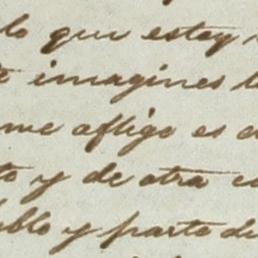 lo que estoy
imagines
me aflige es
to y de otra
blo y parte de